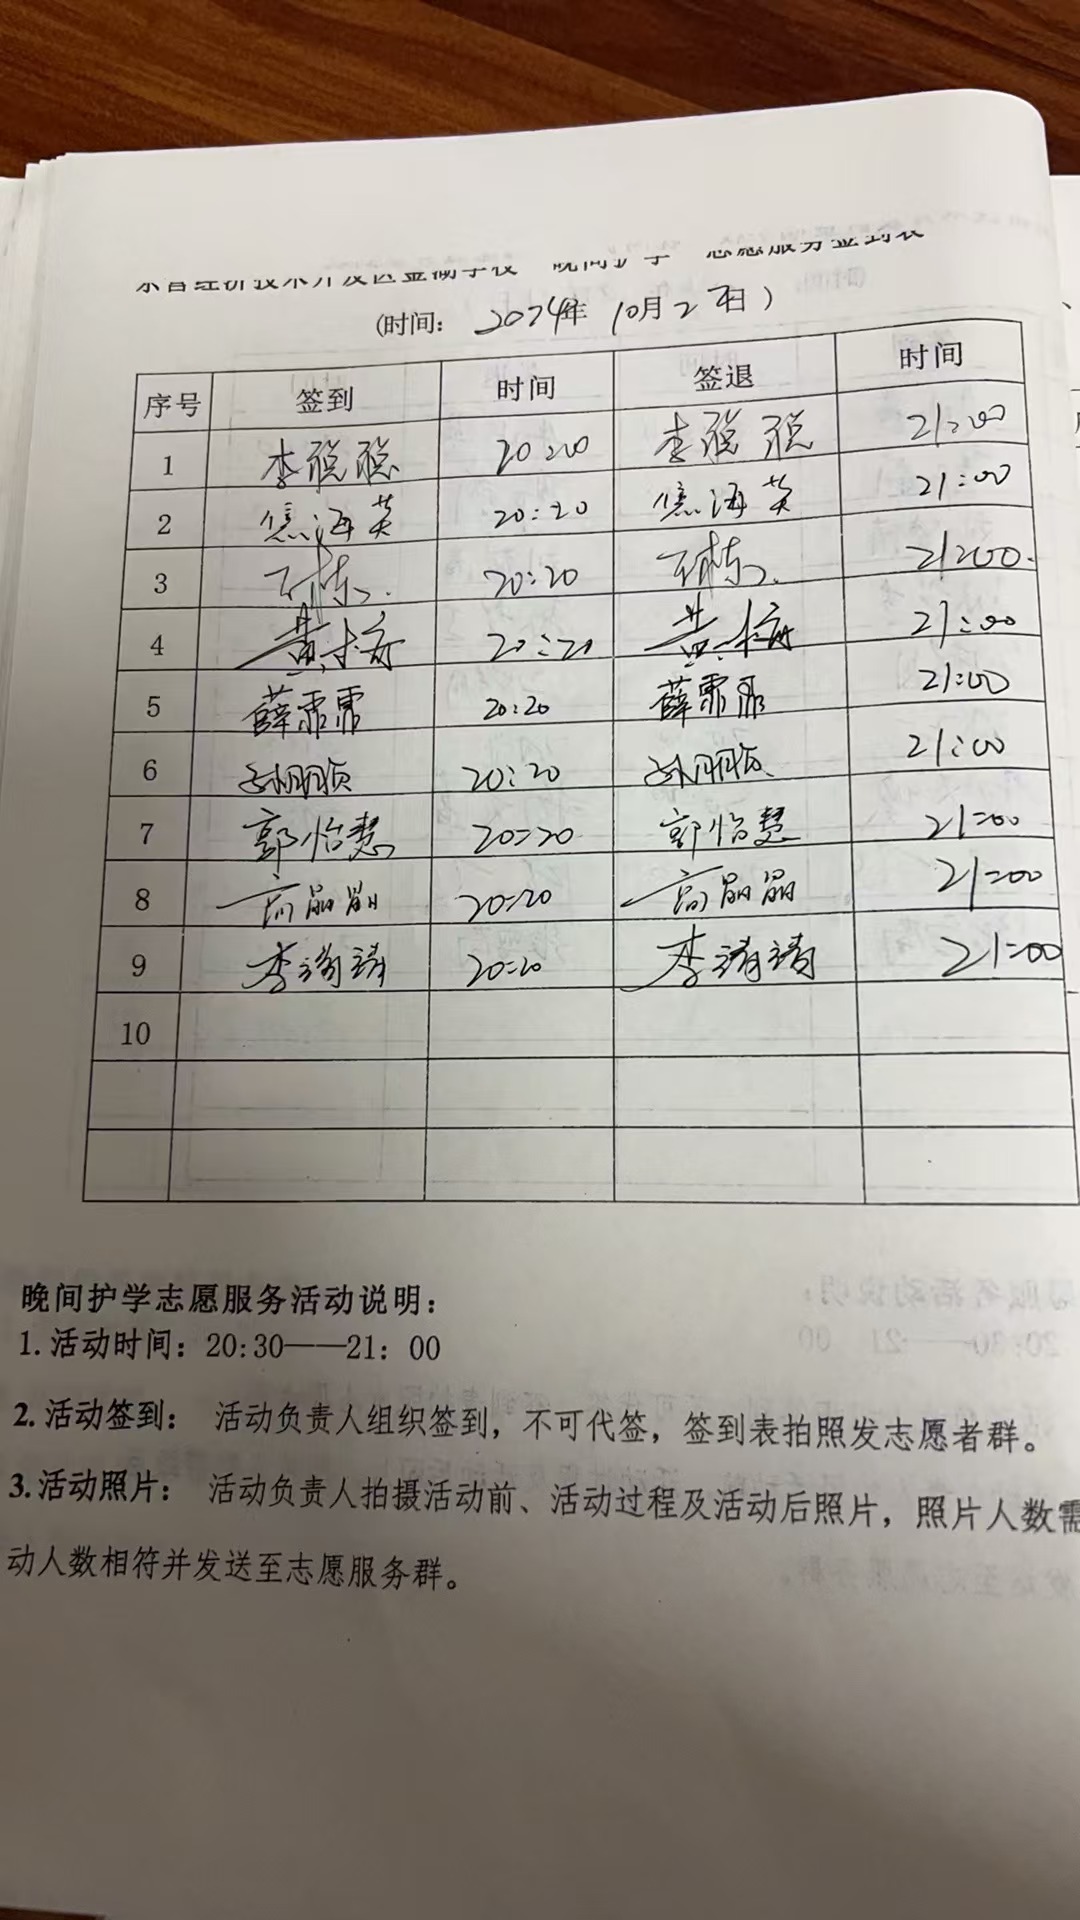 东营经济技术开发区金湖学校“晚间护学”志愿服务签到表
(时间: 2024年 10月27日)
序号 签到 时间 签退 时间
1 李聪聪 20:20 李聪聪 21:00
2 焦海英 20:20 焦海英 21:00
3 20:20 21:00
4 黄 20:20 黄 21:00
5 薛霏霏 20:20 薛霏霏 21:00
6 孙丽颖 20:20 孙丽颖 21:00
7 郭怡慧 20:20 郭怡慧 21:00
8 高晶晶 20:20 高晶晶 21:00
9 李靖靖 20:20 李靖靖 21:00
10
晚间护学志愿服务活动说明:
1. 活动时间: 20:30——21: 00
2. 活动签到: 活动负责人组织签到, 不可代签, 签到表拍照发志愿者群。
3. 活动照片: 活动负责人拍摄活动前、活动过程及活动后照片, 照片人数需
动人数相符并发送至志愿服务群。